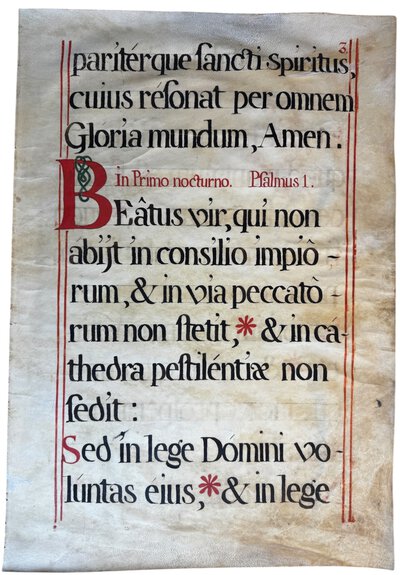 3.
paritérque ſancti spiritus,
cuius réſonat per omnem
Gloria mundum, Amen.
In Primo nocturno. Pſalmus 1.
BEâtus vir, qui non
abijt in consilio impiô-
rum, & in via peccatò-
rum non ſtetit, * & in cá-
thedra peſtiléntiæ non
ſedit:
Sed in lege Dómini vo-
lúntas eius, * & in lege